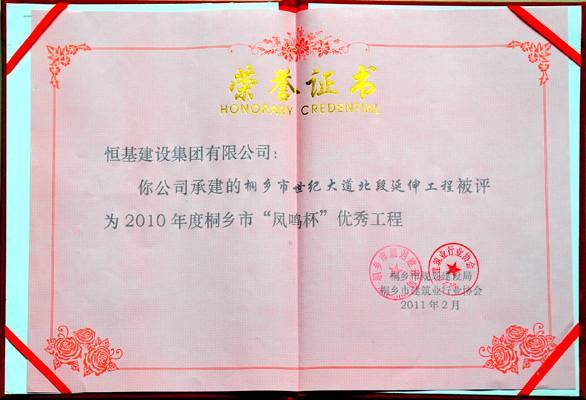 荣誉证书
HONORARY CREDENTIAL
恒基建设集团有限公司：
你公司承建的桐乡市世纪大道北段延伸工程被评
为2010年度桐乡市“凤鸣杯”优秀工程
桐乡市规划建设局
桐乡市建筑业行业协会
2011年2月